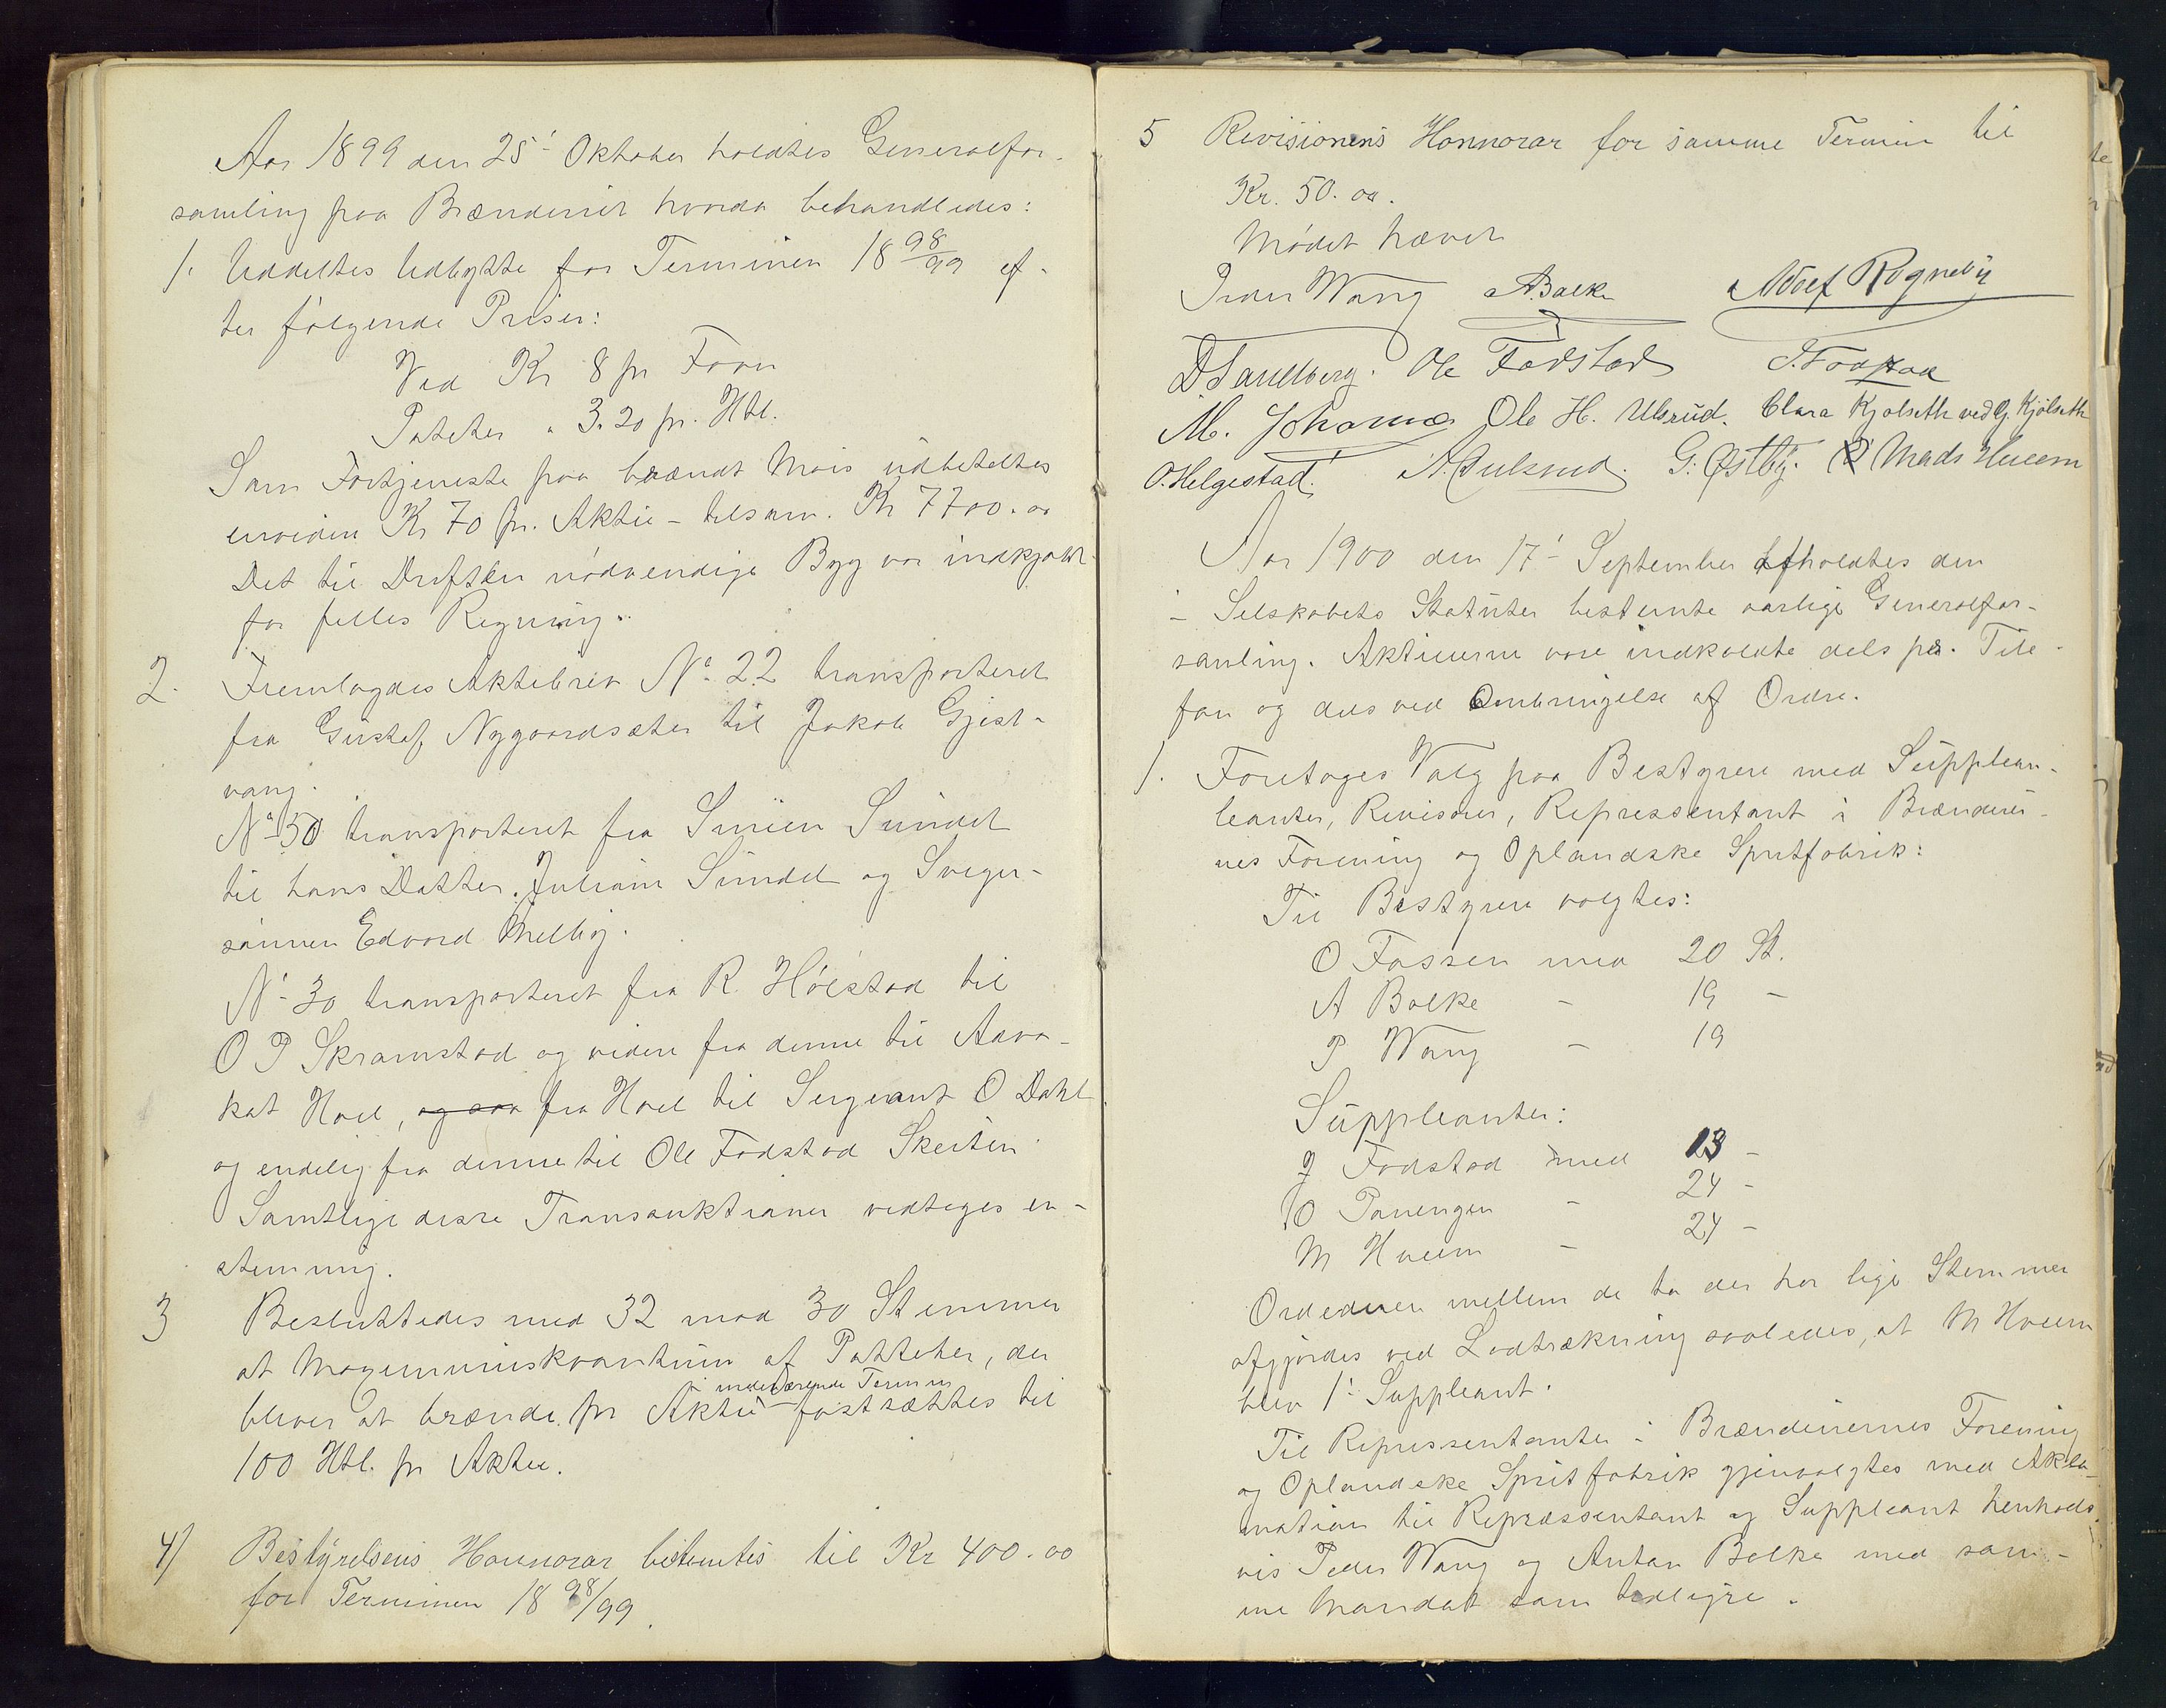 Aar 1899 den 25' Oktober holdtes Generalfor-
samling paa Brænderiet hvorda behandledes:
1. Uddeltes Udbytte for Terminen 18 98/99 ef-
ter følgende Priser:
Ved Kr 8 pr Favn
Poteter " 3.20 pr. Htl.
Som Fortjeneste paa brændt Mais udbetaltes
enviden Kr 70 pr. Aktie - tilsam. Kr 7700.00
Det til Driften nødvendige Byg var indkjøbt
for felles Regning.
2. Fremlagdes Aktiebrev No 22 transporteret
fra Gustaf Nygaardsæter til Jakob Gjest-
vang.
No 50 transporteret fra Simen Sundet
til hans Datter Juliane Sundet og Sviger-
sønnen Edvard Melby.
No 30 transporteret fra R. Hølstad til
O P Skramstad og videre fra denne til Advo-
kat Hoel, og saa fra Hoel til Sergeant O Dahl
og endelig fra denne til Ole Fodstad Skeiten.
Samtlige disse Transauktioner vedtoges en-
stemmig.
3 Besluttedes med 32 mod 30 Stemmer
at Magimumskvantum af Potteter, der
indeværende Termin
bliver at brænde pr Aktie fastsættes til
100 Htl. pr Aktie.
4) Bestyrelsens Honnorar bestemtes til Kr 400.00
for Terminen 18 98/99.
5 Revisionens Honnorar for samme Termin til
Kr. 50.00.
Mødet hævet
Peder Wang A. Balke Adolf Rogneby
D Sandberg. Ole Fodstad J. Fodstad
M. Ole H. Ulsrud. Clara Kjølseth ved G. Kjølseth
O. Helgestad. G. Østby. Mads Hveem
Aar 1900 den 17' September afholdtes den
i Selskabets Statuter bestemte aarlige Generalfor-
samling. Aktieerne vare indkaldte dels pr. Tele-
fon og dels ved Ombringelse af Ordre.
1. Foretoges Valg paa Bestyrere med Supplean-
leanter, Revisorer, Repressentant i Brænderier-
nes Forening og Oplandske Spritfabrik:
Til Bestyrere valgtes:
O Fossen med 20 St.
A Balke - 19 -
P Wang - 19
Suppleanter:
J Fodstad med 13 -
O Panengen - 24 -
M Hveem - 24 -
Ordenen mellem de to der har lige Stemmer
afgjordes ved Lodtrækning saaledes, at M Hveem
blev 1' Suppleant.
Til Repressentanter i Brænderiernes Forening
og Oplandske Spritfabrik gjenvalgtes med Akla-
mation til Repræssentant og Suppleant henhods-
vis Peder Wang og Anton Balke med sam-
me Mandat som tidligere.